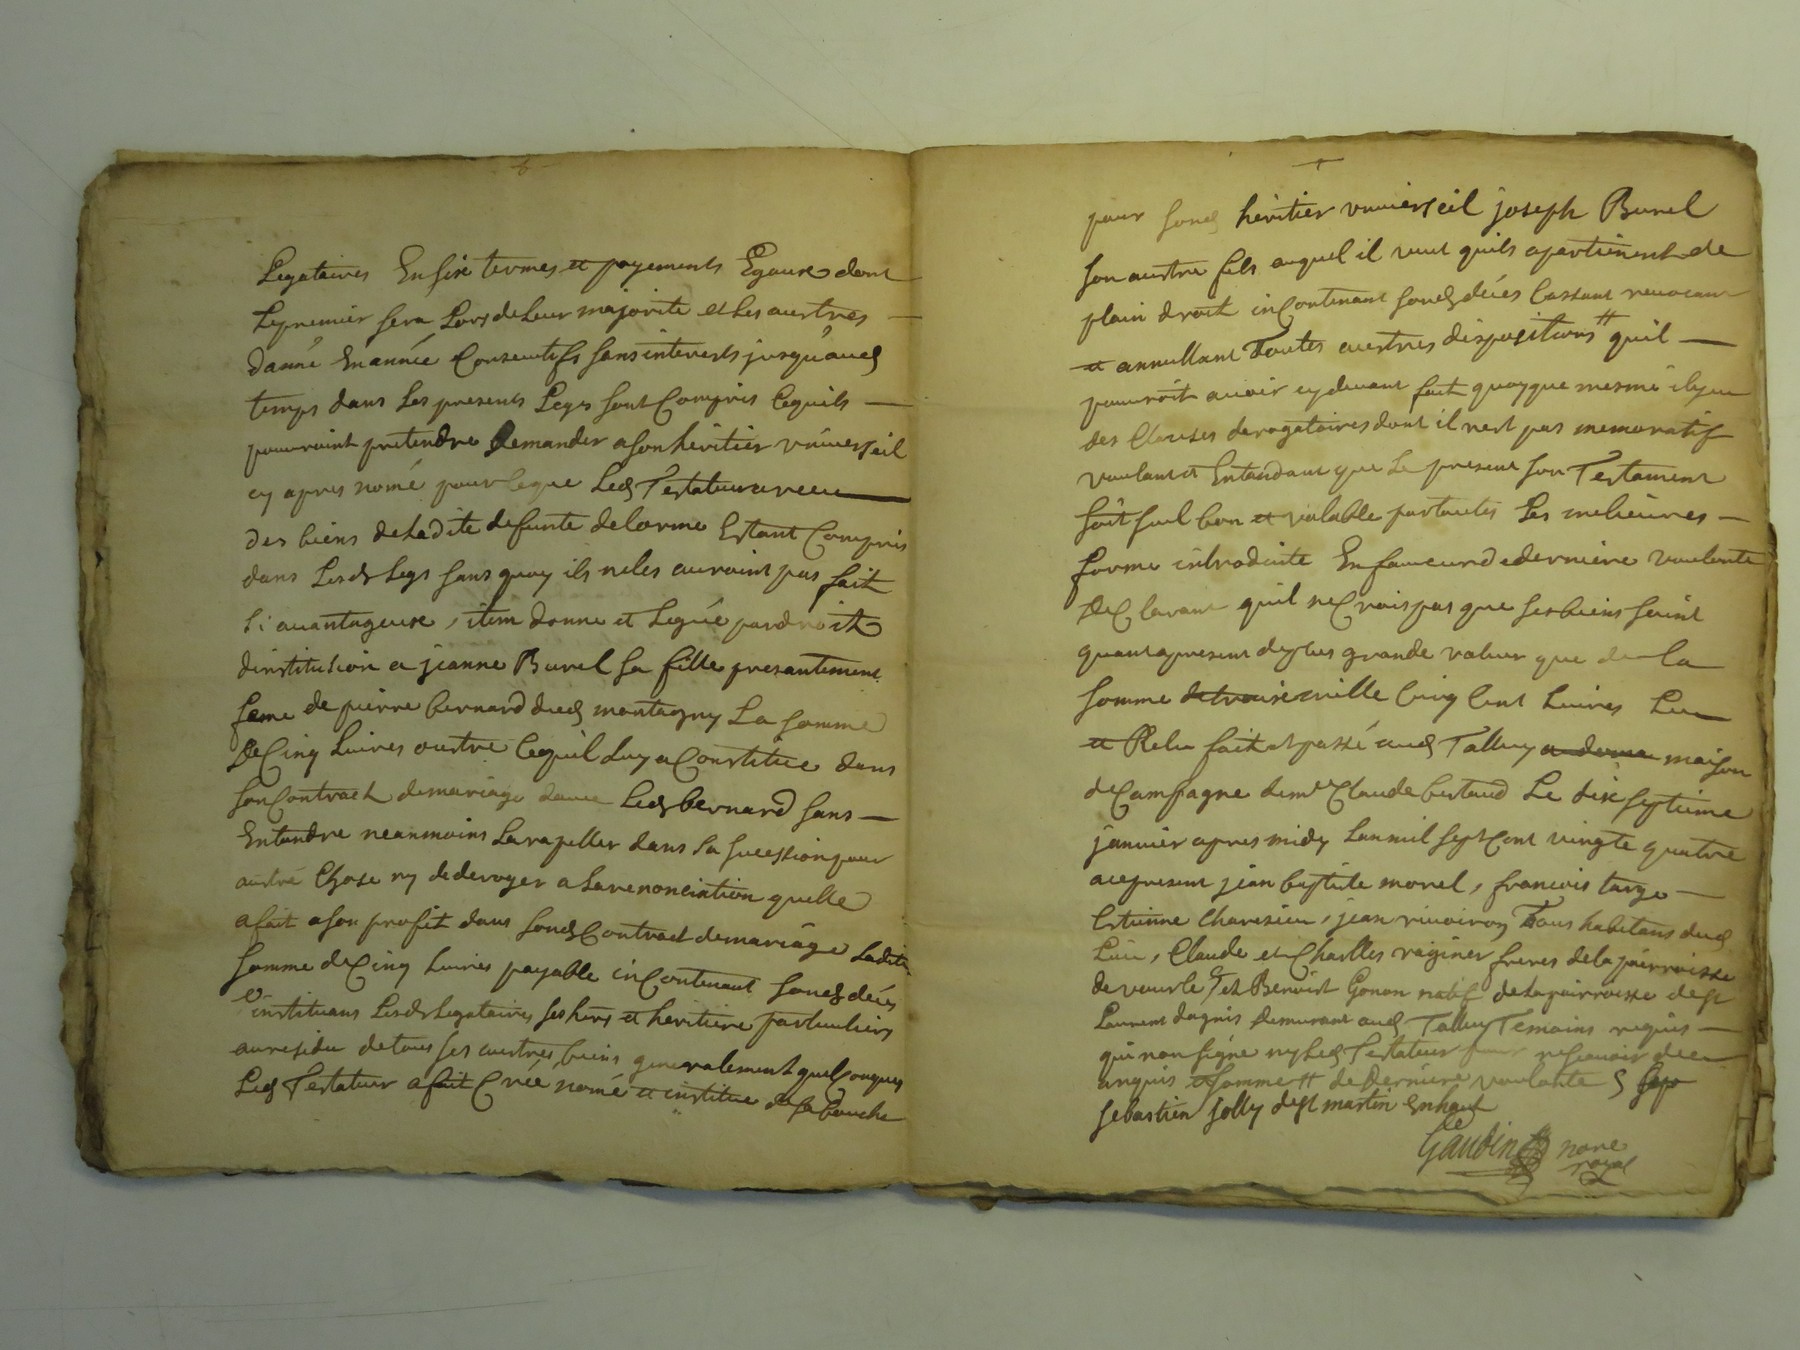 Legataires En six termes et payements Egaux dont
Le premier sera Lors de Leur majorite et Les austres
danné En année Consecutifs sans interests jusquaud
temps dans Les presents Legs sont Compris Cequils
pourroint pretendre demander a son héritier vniverseil
cy apres nomé pour Ceque Led Testateur a receu
des biens de Ladite defunte delorme Estant Compris
dans Lesds Legs sans quoy ils ne les auroint pas fait
si auantageux, item donne et Legue par droit
dinstitution a jeanne Burel sa fille presantement
feme de pierre bernard dud montagny La somme
de Cinq Liures oustre Cequil Luy a Constitue dans
son Contract de mariage Led bernard sans
Entandre neanmoins La rapeller dans sa sucession pour
austre Chose ny de deroger a La renonciation quelle
a fait a son profit dans sond Contract de mariage Ladite
somme de Cinq Liures payable inContenant sond déces
instituans Lesds Legataires ses hers et héritiere particuliers
au residu de tous ses austres biens generalement quelConques
Led Testateur a fait Créé nomé et institue de sa bouche
pour sond héritier vniverseil joseph Burel
son austre fils auquel il veut quils apartienent de
plain droit inContenant sond déces Cassant reuocant
et annullant Toutes austres dispositions # quil
pourroit auoir cy deuant fait quoyque mesme il y eu
des Clauses derogatoires dont il nest pas memoratif
voulant et Entandant que Le present son Testament
soit seul bon et valable par toutes Les melieures
forme introduite En faueur de derniere voulonte
deClarant quil ne Crois pas que ses biens soint
quant a present de plus grande valeur que de la
somme de trois mille Cinq Cent Liures Leu
et Relu fait et passé aud Talluy maison
de Campagne de mr Claude bertaud Le dix septieme
januier apres midy Lan mil sept Cent vingte quatre
a ce present jean baptiste morel, francois targe
Estienne Charezieu, jean riuoiron Tous habitans dud
Lieu, Claude et Charlles raginer freres de la pairroisse
de vourle, et Benoist Gonon natif de La pairroisse de st
Laurent dagnis demurant aud Talluy Temoins requis
qui non signe ny Led Testateur pour ne scauoir de ce
enquis et somme # de derniere voulonte
sebastien jolly de st martin Enhaut
Gaudin nore
royal